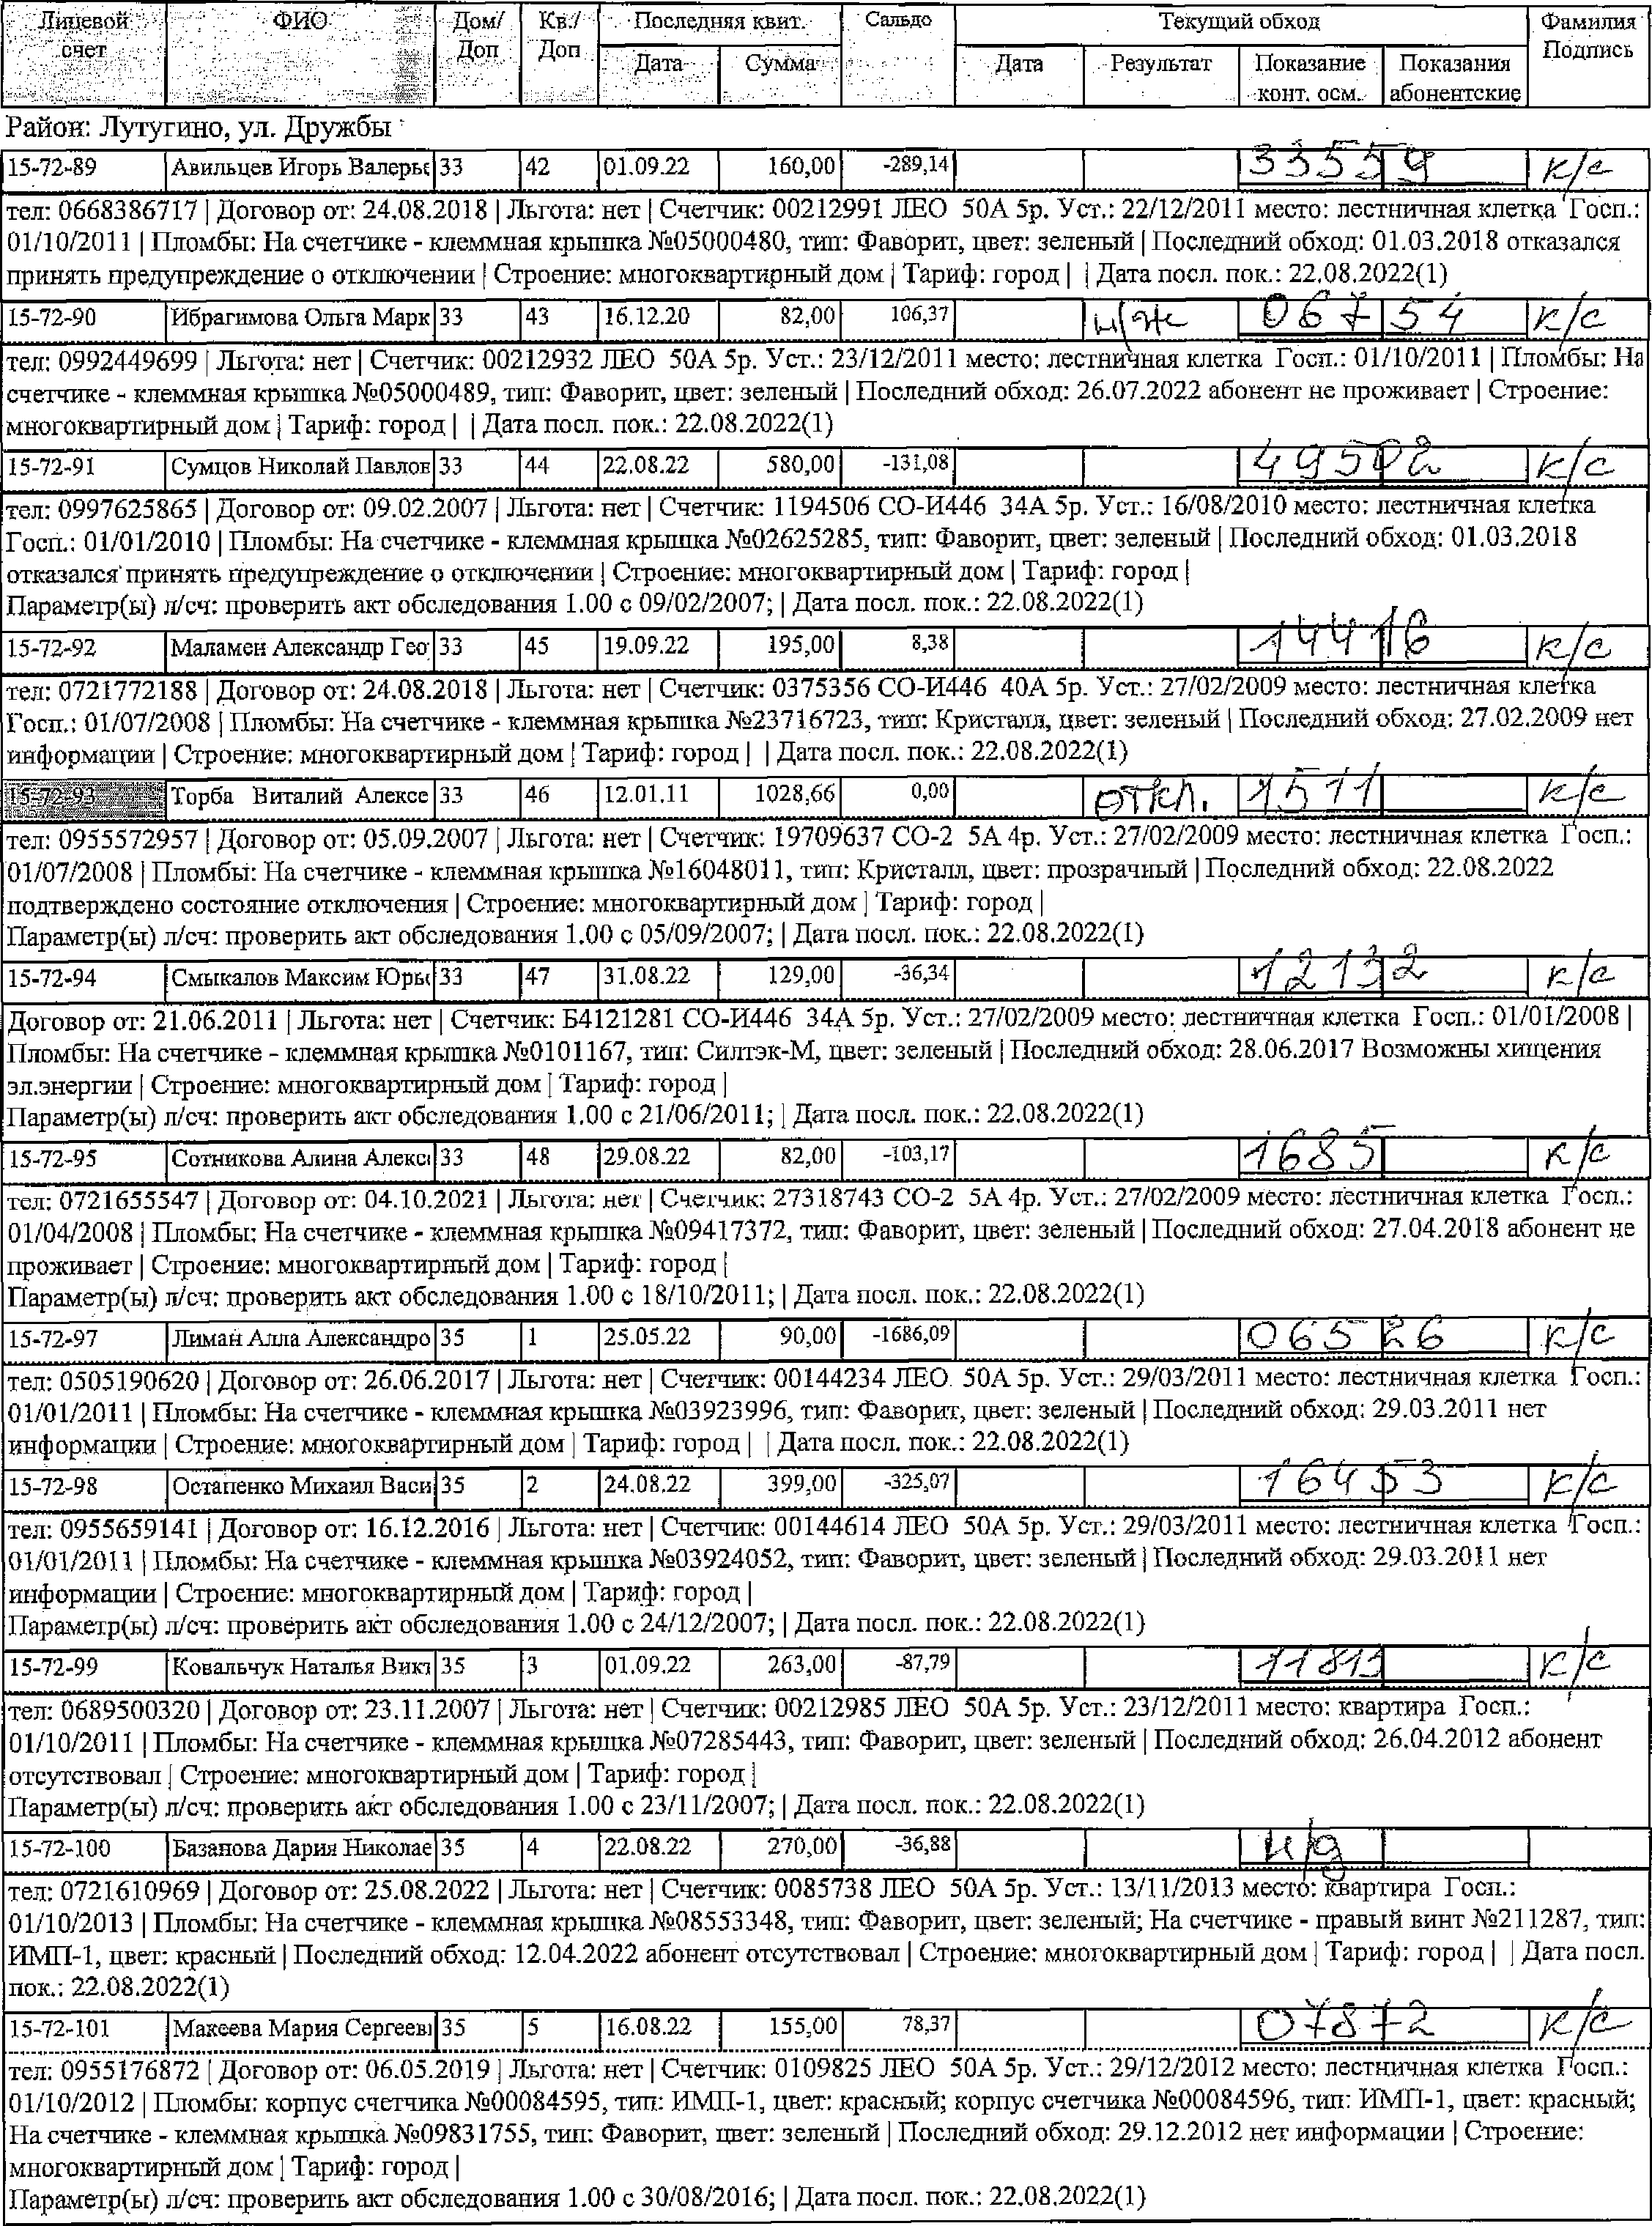 Лицевой счет | ФИО | Дом/Доп | Кв./Доп | Последняя квит. | Сальдо | Текущий обход | Фамилия Подпись
Дата | Сумма | Дата | Результат | Показание конт. осм. | Показания абонентские
Район: Лутугино, ул. Дружбы
15-72-89 | Авильцев Игорь Валерье | 33 | 42 | 01.09.22 | 160,00 | -289,14 | 33559 | к/с
тел: 0668386717 | Договор от: 24.08.2018 | Льгота: нет | Счетчик: 00212991 ЛЕО 50А 5р. Уст.: 22/12/2011 место: лестничная клетка Госп.:
01/10/2011 | Пломбы: На счетчике - клеммная крышка №05000480, тип: Фаворит, цвет: зеленый | Последний обход: 01.03.2018 отказался
принять предупреждение о отключении | Строение: многоквартирный дом | Тариф: город | | Дата посл. пок.: 22.08.2022(1)
15-72-90 | Ибрагимова Ольга Марк | 33 | 43 | 16.12.20 | 82,00 | 106,37 | н/ж | 06754 | к/с
тел: 0992449699 | Льгота: нет | Счетчик: 00212932 ЛЕО 50А 5р. Уст.: 23/12/2011 место: лестничная клетка Госп.: 01/10/2011 | Пломбы: На
счетчике - клеммная крышка №05000489, тип: Фаворит, цвет: зеленый | Последний обход: 26.07.2022 абонент не проживает | Строение:
многоквартирный дом | Тариф: город | | Дата посл. пок.: 22.08.2022(1)
15-72-91 | Сумцов Николай Павлов | 33 | 44 | 22.08.22 | 580,00 | -131,08 | 49502 | к/с
тел: 0997625865 | Договор от: 09.02.2007 | Льгота: нет | Счетчик: 1194506 СО-И446 34А 5р. Уст.: 16/08/2010 место: лестничная клетка
Госп.: 01/01/2010 | Пломбы: На счетчике - клеммная крышка №02625285, тип: Фаворит, цвет: зеленый | Последний обход: 01.03.2018
отказался принять предупреждение о отключении | Строение: многоквартирный дом | Тариф: город |
Параметр(ы) л/сч: проверить акт обследования 1.00 с 09/02/2007; | Дата посл. пок.: 22.08.2022(1)
15-72-92 | Маламен Александр Гео | 33 | 45 | 19.09.22 | 195,00 | 8,38 | 14416 | к/с
тел: 0721772188 | Договор от: 24.08.2018 | Льгота: нет | Счетчик: 0375356 СО-И446 40А 5р. Уст.: 27/02/2009 место: лестничная клетка
Госп.: 01/07/2008 | Пломбы: На счетчике - клеммная крышка №23716723, тип: Кристалл, цвет: зеленый | Последний обход: 27.02.2009 нет
информации | Строение: многоквартирный дом | Тариф: город | | Дата посл. пок.: 22.08.2022(1)
15-72-93 | Торба Виталий Алексе | 33 | 46 | 12.01.11 | 1028,66 | 0,00 | откл. | 1511 | к/с
тел: 0955572957 | Договор от: 05.09.2007 | Льгота: нет | Счетчик: 19709637 СО-2 5А 4р. Уст.: 27/02/2009 место: лестничная клетка Госп.:
01/07/2008 | Пломбы: На счетчике - клеммная крышка №16048011, тип: Кристалл, цвет: прозрачный | Последний обход: 22.08.2022
подтверждено состояние отключения | Строение: многоквартирный дом | Тариф: город |
Параметр(ы) л/сч: проверить акт обследования 1.00 с 05/09/2007; | Дата посл. пок.: 22.08.2022(1)
15-72-94 | Смыкалов Максим Юрье | 33 | 47 | 31.08.22 | 129,00 | -36,34 | 12132 | к/с
Договор от: 21.06.2011 | Льгота: нет | Счетчик: Б4121281 СО-И446 34А 5р. Уст.: 27/02/2009 место: лестничная клетка Госп.: 01/01/2008 |
Пломбы: На счетчике - клеммная крышка №0101167, тип: Силтэк-М, цвет: зеленый | Последний обход: 28.06.2017 Возможны хищения
эл.энергии | Строение: многоквартирный дом | Тариф: город |
Параметр(ы) л/сч: проверить акт обследования 1.00 с 21/06/2011; | Дата посл. пок.: 22.08.2022(1)
15-72-95 | Сотникова Алина Алекс | 33 | 48 | 29.08.22 | 82,00 | -103,17 | 1685 | к/с
тел: 0721655547 | Договор от: 04.10.2021 | Льгота: нет | Счетчик: 27318743 СО-2 5А 4р. Уст.: 27/02/2009 место: лестничная клетка Госп.:
01/04/2008 | Пломбы: На счетчике - клеммная крышка №09417372, тип: Фаворит, цвет: зеленый | Последний обход: 27.04.2018 абонент не
проживает | Строение: многоквартирный дом | Тариф: город |
Параметр(ы) л/сч: проверить акт обследования 1.00 с 18/10/2011; | Дата посл. пок.: 22.08.2022(1)
15-72-97 | Лиман Алла Александро | 35 | 1 | 25.05.22 | 90,00 | -1686,09 | 06526 | к/с
тел: 0505190620 | Договор от: 26.06.2017 | Льгота: нет | Счетчик: 00144234 ЛЕО 50А 5р. Уст.: 29/03/2011 место: лестничная клетка Госп.:
01/01/2011 | Пломбы: На счетчике - клеммная крышка №03923996, тип: Фаворит, цвет: зеленый | Последний обход: 29.03.2011 нет
информации | Строение: многоквартирный дом | Тариф: город | | Дата посл. пок.: 22.08.2022(1)
15-72-98 | Остапенко Михаил Васи | 35 | 2 | 24.08.22 | 399,00 | -325,07 | 16453 | к/с
тел: 0955659141 | Договор от: 16.12.2016 | Льгота: нет | Счетчик: 00144614 ЛЕО 50А 5р. Уст.: 29/03/2011 место: лестничная клетка Госп.:
01/01/2011 | Пломбы: На счетчике - клеммная крышка №03924052, тип: Фаворит, цвет: зеленый | Последний обход: 29.03.2011 нет
информации | Строение: многоквартирный дом | Тариф: город |
Параметр(ы) л/сч: проверить акт обследования 1.00 с 24/12/2007; | Дата посл. пок.: 22.08.2022(1)
15-72-99 | Ковальчук Наталья Викт | 35 | 3 | 01.09.22 | 263,00 | -87,79 | к/с
тел: 0689500320 | Договор от: 23.11.2007 | Льгота: нет | Счетчик: 00212985 ЛЕО 50А 5р. Уст.: 23/12/2011 место: квартира Госп.:
01/10/2011 | Пломбы: На счетчике - клеммная крышка №07285443, тип: Фаворит, цвет: зеленый | Последний обход: 26.04.2012 абонент
отсутствовал | Строение: многоквартирный дом | Тариф: город |
Параметр(ы) л/сч: проверить акт обследования 1.00 с 23/11/2007; | Дата посл. пок.: 22.08.2022(1)
15-72-100 | Базанова Дария Николае | 35 | 4 | 22.08.22 | 270,00 | -36,88 | н/д
тел: 0721610969 | Договор от: 25.08.2022 | Льгота: нет | Счетчик: 0085738 ЛЕО 50А 5р. Уст.: 13/11/2013 место: квартира Госп.:
01/10/2013 | Пломбы: На счетчике - клеммная крышка №08553348, тип: Фаворит, цвет: зеленый; На счетчике - правый винт №211287, тип:
ИМП-1, цвет: красный | Последний обход: 12.04.2022 абонент отсутствовал | Строение: многоквартирный дом | Тариф: город | | Дата посл.
пок.: 22.08.2022(1)
15-72-101 | Макеева Мария Сергеевн | 35 | 5 | 16.08.22 | 155,00 | 78,37 | 07872 | к/с
тел: 0955176872 | Договор от: 06.05.2019 | Льгота: нет | Счетчик: 0109825 ЛЕО 50А 5р. Уст.: 29/12/2012 место: лестничная клетка Госп.:
01/10/2012 | Пломбы: корпус счетчика №00084595, тип: ИМП-1, цвет: красный; корпус счетчика №00084596, тип: ИМП-1, цвет: красный;
На счетчике - клеммная крышка №09831755, тип: Фаворит, цвет: зеленый | Последний обход: 29.12.2012 нет информации | Строение:
многоквартирный дом | Тариф: город |
Параметр(ы) л/сч: проверить акт обследования 1.00 с 30/08/2016; | Дата посл. пок.: 22.08.2022(1)